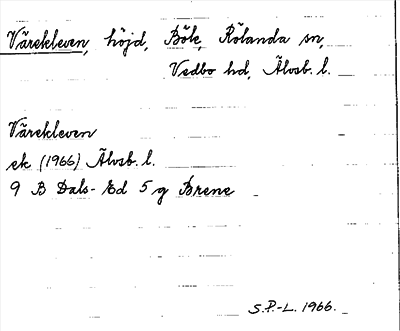 Värekleven, höjd, Bök, Rölanda sn,
Vedbo hd, Älvsb. l.
Värekleven
ek (1966) Älvsb. l.
9 B Dals-Ed 5 g Brene
S.P.-L. 1966.